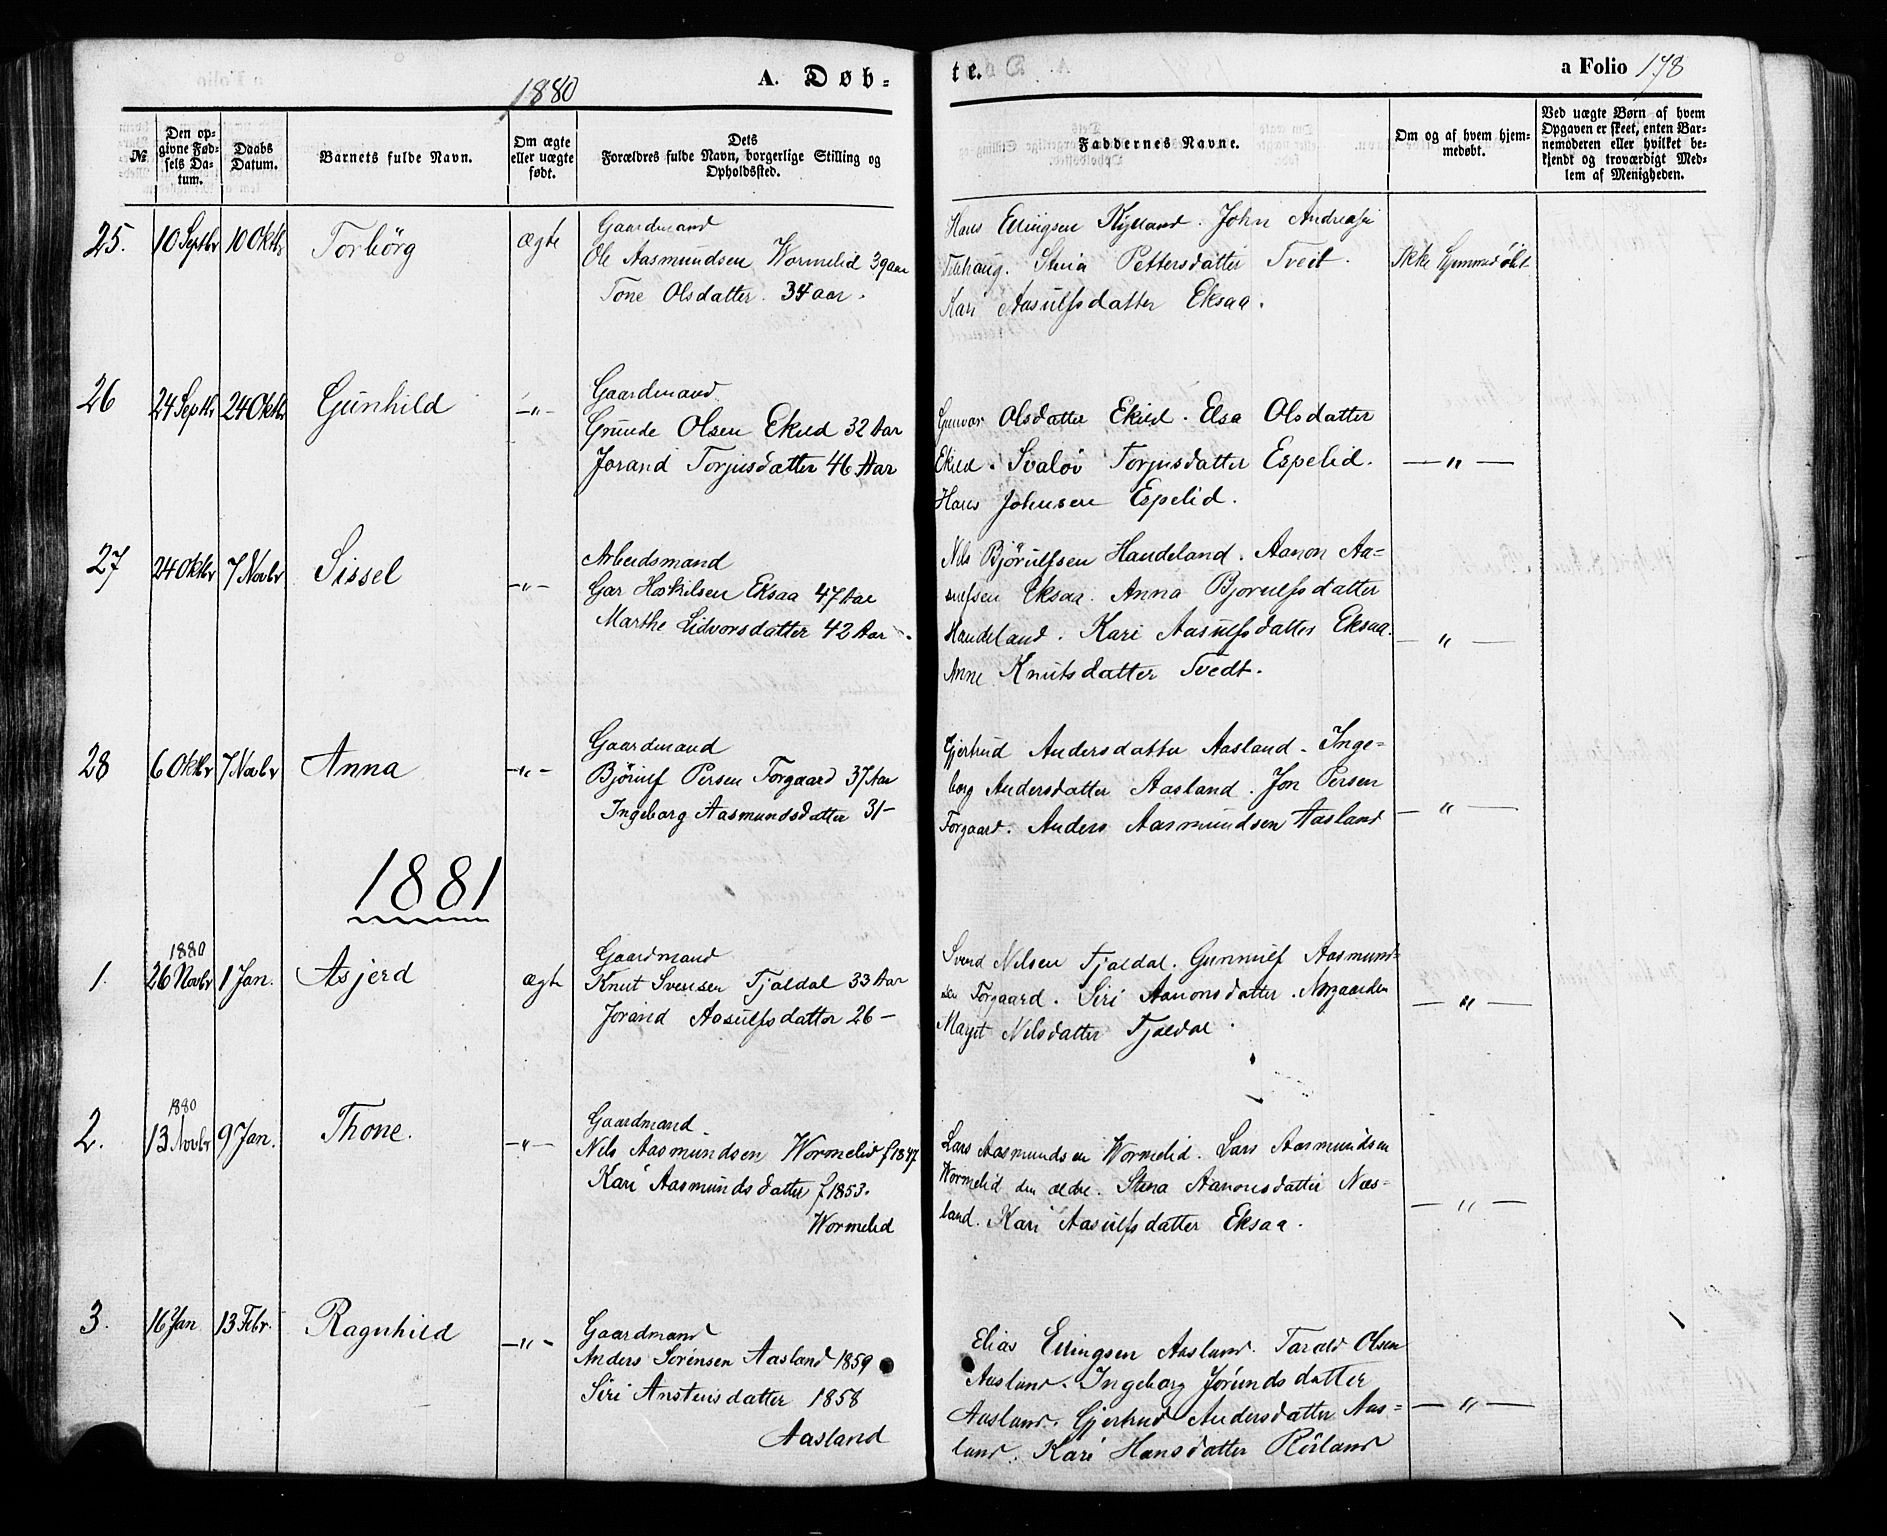 1880
A. Døb-
te.
a Folio 178
№
Den op-
givne Fød-
sels Da-
tum.
Daabs
Datum.
Barnets fulde Navn.
Om ægte
eller uægte
født.
Dets
Forældres fulde Navn, borgerlige Stilling og
Opholdssted.
Faddernes Navne.
Om og af hvem hjem-
medøbt.
Ved uægte Børn af hvem
Opgaven er skeet, enten Bar-
nemoderen eller hvilket be-
kjendt og troværdigt Med-
lem af Menigheden.
25. 10 Septbr 10 Oktbr Torbörg ægte
Gaardmand
Ole Aasmundsen Wormelid 39 aar
Tone Olsdatter. 34 aar.
Hans Ellingsen Kylland. John Andreas
Stina Pettersdatter Tveit.
Kari Aasulfsdatter Eksaa.
Ikke hjemmedøbt
26 24 Septbr 24 Oktbr Gunhild —"—
Gaardmand
Grunde Olsen Ekeld 32 Aar
Jorand Torjusdatter 46 Aar
Gunvor Olsdatter Ekeld. Elsa Olsdatter
Ekeld. Svalöv Torjusdatter Espelid.
Hans Johnsen Espelid.
—"—
27 24 Oktbr 7 Novbr Sissel —"—
Arbeidsmand
Gar Hoskilsen Eksaa 47 Aar
Marthe Lidvorsdatter 42 Aar.
Nils Bjørulfsen Haudeland. Aanon Aa-
sulfsen Eksaa. Anna Bjorulfsdatter
Haudeland. Kari Aasulfsdatter Eksaa.
Anne Knutsdatter Tvedt.
—"—
28 6 Oktbr 7 Novbr Anna —"—
Gaardmand
Bjørulf Persen Torgaard 37 Aar
Ingeborg Aasmundsdatter 31 —
Gjertrud Andersdatter Aasland. Inge-
borg Andersdatter Aasland. Jon Persen
Torgaard. Anders Aasmundsen Aasland
—"—
1881
1880
1. 26 Novbr 1 Jan. Asjerd ægte
Gaardmand
Knut Svensen Tjaldal 33 Aar
Jorand Aasulfsdatter 26 —
Svend Nilsen Tjaldal. Gunnulf Aasmund-
sen Torgaard. Siri Aanonsdatter. Norgaarden
Margit Nilsdatter Tjaldal.
—"—
1880
2. 13 Novbr 9 Jan. Thone. —"—
Gaardmand
Nils Aasmundsen Wormelid f 1847
Kari Aasmundsdatter f 1853.
Wormelid
Lars Aasmundsen Wormelid. Lars Aasmundsen
Wormelid den ældre. Stina Aanonsdatter Næs-
land. Kari Aasulfsdatter Eksaa.
—"—
3. 16 Jan 13 Febr. Ragnhild —"—
Gaardmand
Anders Sørensen Aasland 1859
Siri Anstensdatter 1858
Aasland
Elias Ellingsen Aasland. Tarald Olsen
Aasland. Ingeborg Jørundsdatter
Aasland. Gjertrud Andersdatter Aas-
land. Kari Hansdatter Risland
—"—